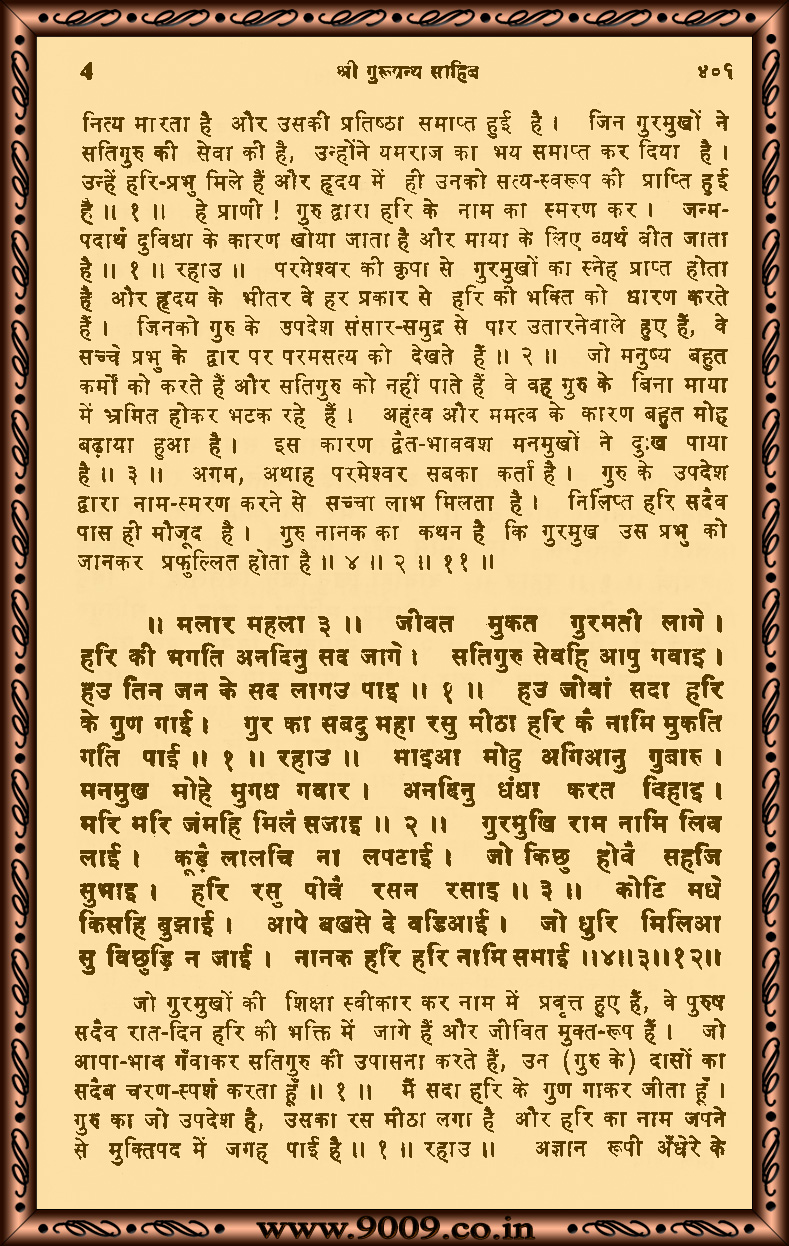 4 श्री गुरूग्रन्थ साहिब ४०६
नित्य मारता है और उसकी प्रतिष्ठा समाप्त हुई है । जिन गुरमुखों ने
सतिगुरु की सेवा की है, उन्होंने यमराज का भय समाप्त कर दिया है ।
उन्हें हरि-प्रभु मिले हैं और हृदय में ही उनको सत्य-स्वरूप की प्राप्ति हुई
है ॥ १ ॥ हे प्राणी ! गुरु द्वारा हरि के नाम का स्मरण कर । जन्म-
पदार्थ दुविधा के कारण खोया जाता है और माया के लिए व्यर्थ बीत जाता
है ॥ १ ॥ रहाउ ॥ परमेश्वर की कृपा से गुरमुखों का स्नेह प्राप्त होता
है और हृदय के भीतर वे हर प्रकार से हरि की भक्ति को धारण करते
हैं । जिनको गुरु के उपदेश संसार-समुद्र से पार उतारनेवाले हुए हैं, वे
सच्चे प्रभु के द्वार पर परमसत्य को देखते हैं ॥ २ ॥ जो मनुष्य बहुत
कर्मों को करते हैं और सतिगुरु को नहीं पाते हैं वे वह गुरु के बिना माया
में भ्रमित होकर भटक रहे हैं । अहंत्व और ममत्व के कारण बहुत मोह
बढ़ाया हुआ है । इस कारण द्वैत-भाववश मनमुखों ने दुःख पाया
है ॥ ३ ॥ अगम, अथाह परमेश्वर सबका कर्ता है । गुरु के उपदेश
द्वारा नाम-स्मरण करने से सच्चा लाभ मिलता है । निर्लिप्त हरि सदैव
पास ही मौजूद है । गुरु नानक का कथन है कि गुरमुख उस प्रभु को
जानकर प्रफुल्लित होता है ॥ ४ ॥ २ ॥ ११ ॥
॥ मलार महला ३ ॥ जीवत मुकत गुरमती लागे ।
हरि की भगति अनदिनु सद जागे । सतिगुरु सेवहि आपु गवाइ ।
हउ तिन जन के सद लागउ पाइ ॥ १ ॥ हउ जीवां सदा हरि
के गुण गाई । गुर का सबदु महा रसु मीठा हरि कै नामि मुकति
गति पाई ॥ १ ॥ रहाउ ॥ माइआ मोहु अगिआनु गुबारु ।
मनमुख मोहे मुगध गवार । अनदिनु धंधा करत विहाइ ।
मरि मरि जंमहि मिलै सजाइ ॥ २ ॥ गुरमुखि राम नामि लिव
लाई । कूड़ै लालचि ना लपटाई । जो किछु होवै सहजि
सुभाइ । हरि रसु पीवै रसन रसाइ ॥ ३ ॥ कोटि मधे
किसहि बुझाई । आपे बखसे दे वडिआई । जो धुरि मिलिआ
सु विछुड़ि न जाई । नानक हरि हरि नामि समाई ॥४॥३॥१२॥
जो गुरमुखों की शिक्षा स्वीकार कर नाम में प्रवृत्त हुए हैं, वे पुरुष
सदैव रात-दिन हरि की भक्ति में जागे हैं और जीवित मुक्त-रूप हैं । जो
आपा-भाव गँवाकर सतिगुरु की उपासना करते हैं, उन (गुरु के) दासों का
सदैव चरण-स्पर्श करता हूँ ॥ १ ॥ मैं सदा हरि के गुण गाकर जीता हूँ ।
गुरु का जो उपदेश है, उसका रस मीठा लगा है और हरि का नाम जपने
से मुक्तिपद में जगह पाई है ॥ १ ॥ रहाउ ॥ अज्ञान रूपी अँधेरे के
www.9009.co.in